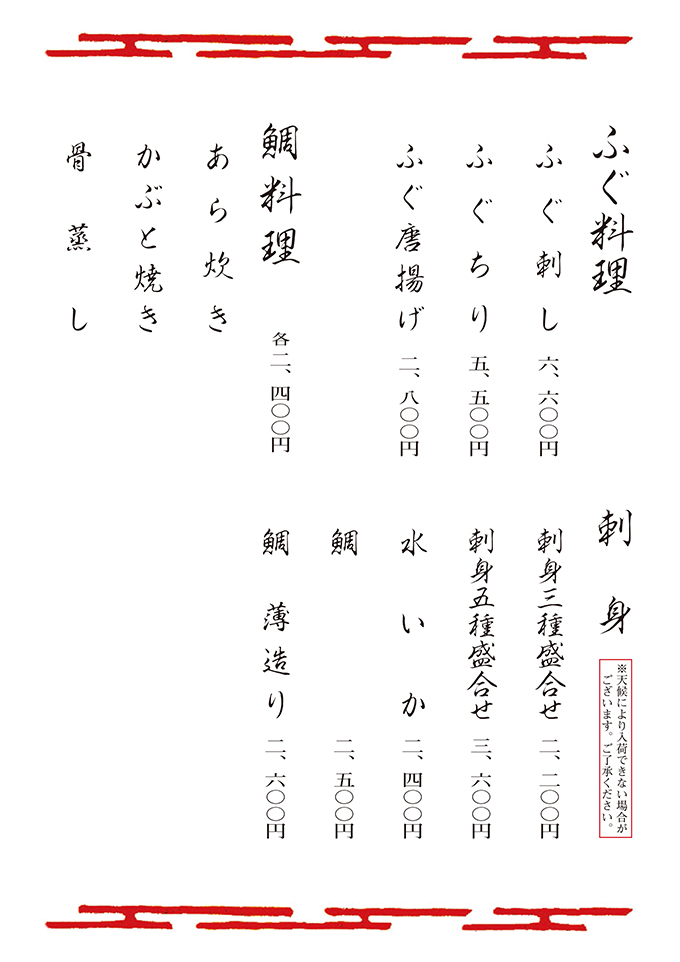 ふぐ料理
ふぐ刺し 六、六〇〇円
ふぐちり 五、五〇〇円
ふぐ唐揚げ 二、八〇〇円
鯛料理 各二、四〇〇円
あら炊き
かぶと焼き
骨蒸し
刺身
※天候により入荷できない場合が
ございます。ご了承ください。
刺身三種盛合せ 二、二〇〇円
刺身五種盛合せ 三、六〇〇円
水いか 二、四〇〇円
鯛 二、五〇〇円
鯛薄造り 二、六〇〇円